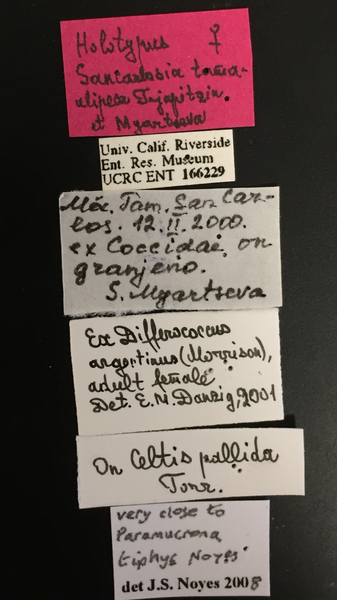 Holotypus ♀
Sancarlosia tama-
ulipeca Trjapitzin
et Myartseva
Univ. Calif. Riverside
Ent. Res. Museum
UCRC ENT 166229
Méx. Tam. San Car-
los. 12.II.2000.
ex Coccidae on
granjeno.
S. Myartseva
Ex Differococcus
argentinus (Morrison),
adult female
Det. E.M. Danzig, 2001
On Celtis pallida
Torr.
very close to
Paramucrona
tiphys Noyes
det J.S. Noyes 2008